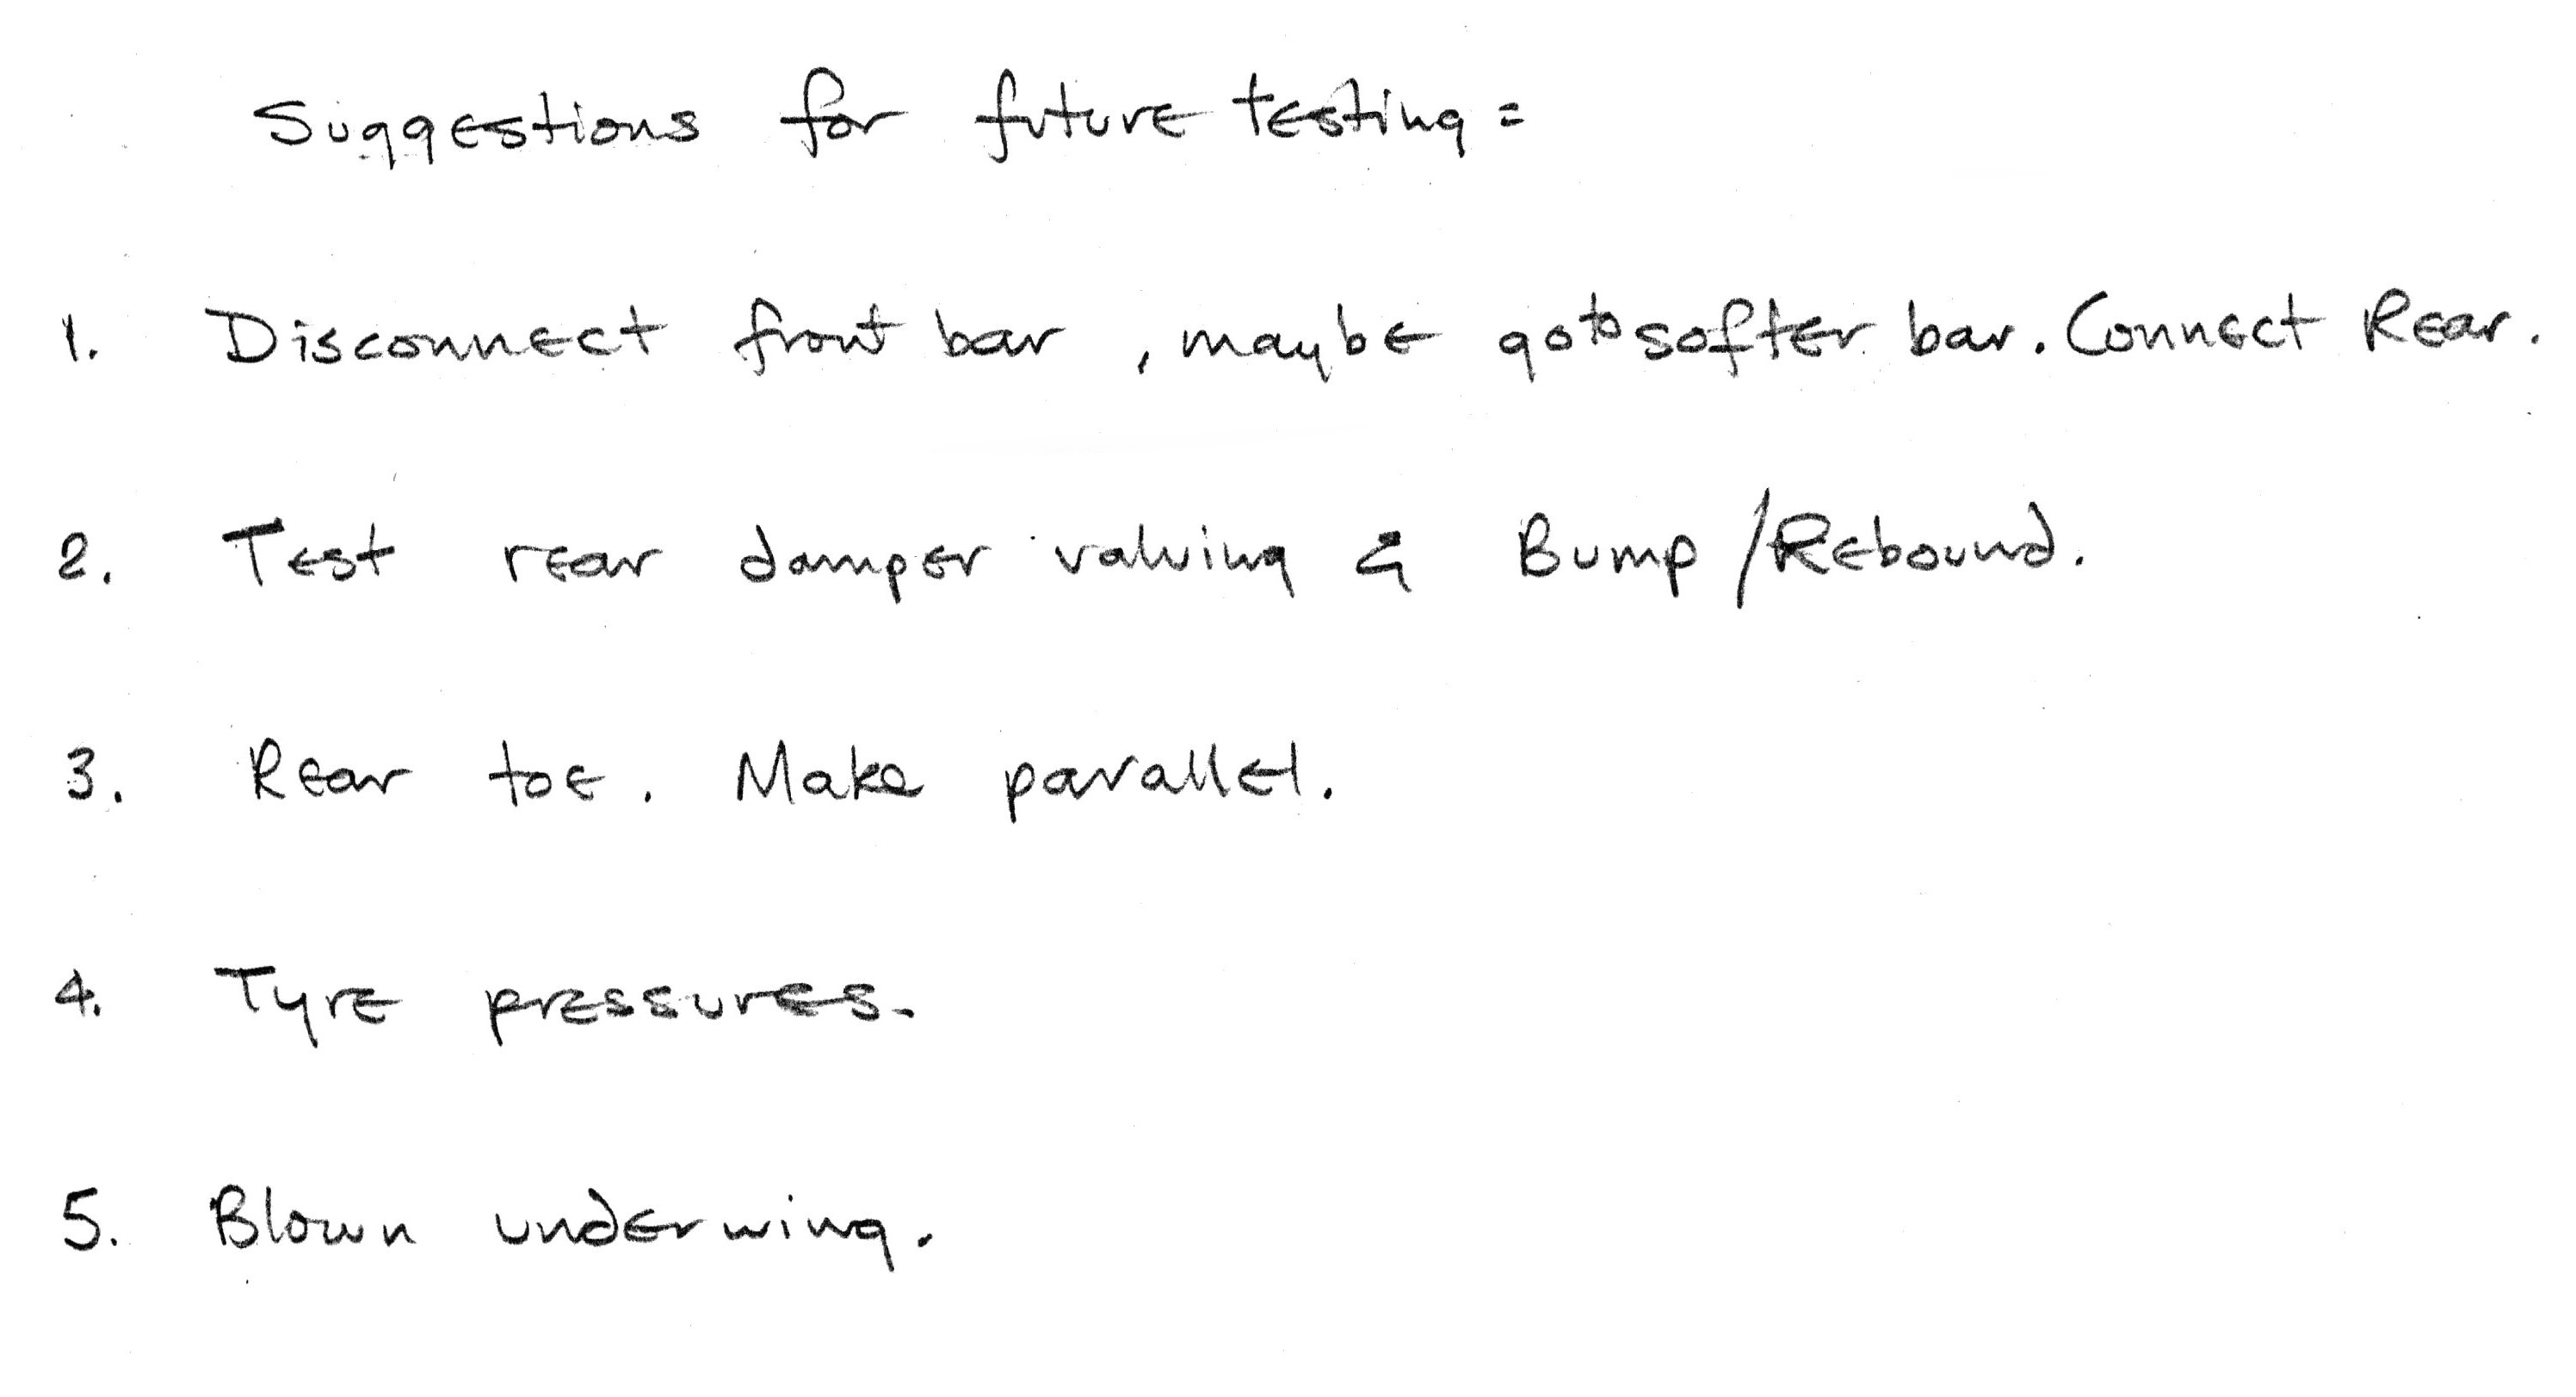 Suggestions for future testing =
1. Disconnect front bar, maybe go to softer bar. Connect Rear.
2. Test rear damper valving & Bump /Rebound.
3. Rear toe. Make parallel.
4. Tyre pressures.
5. Blown underwing.